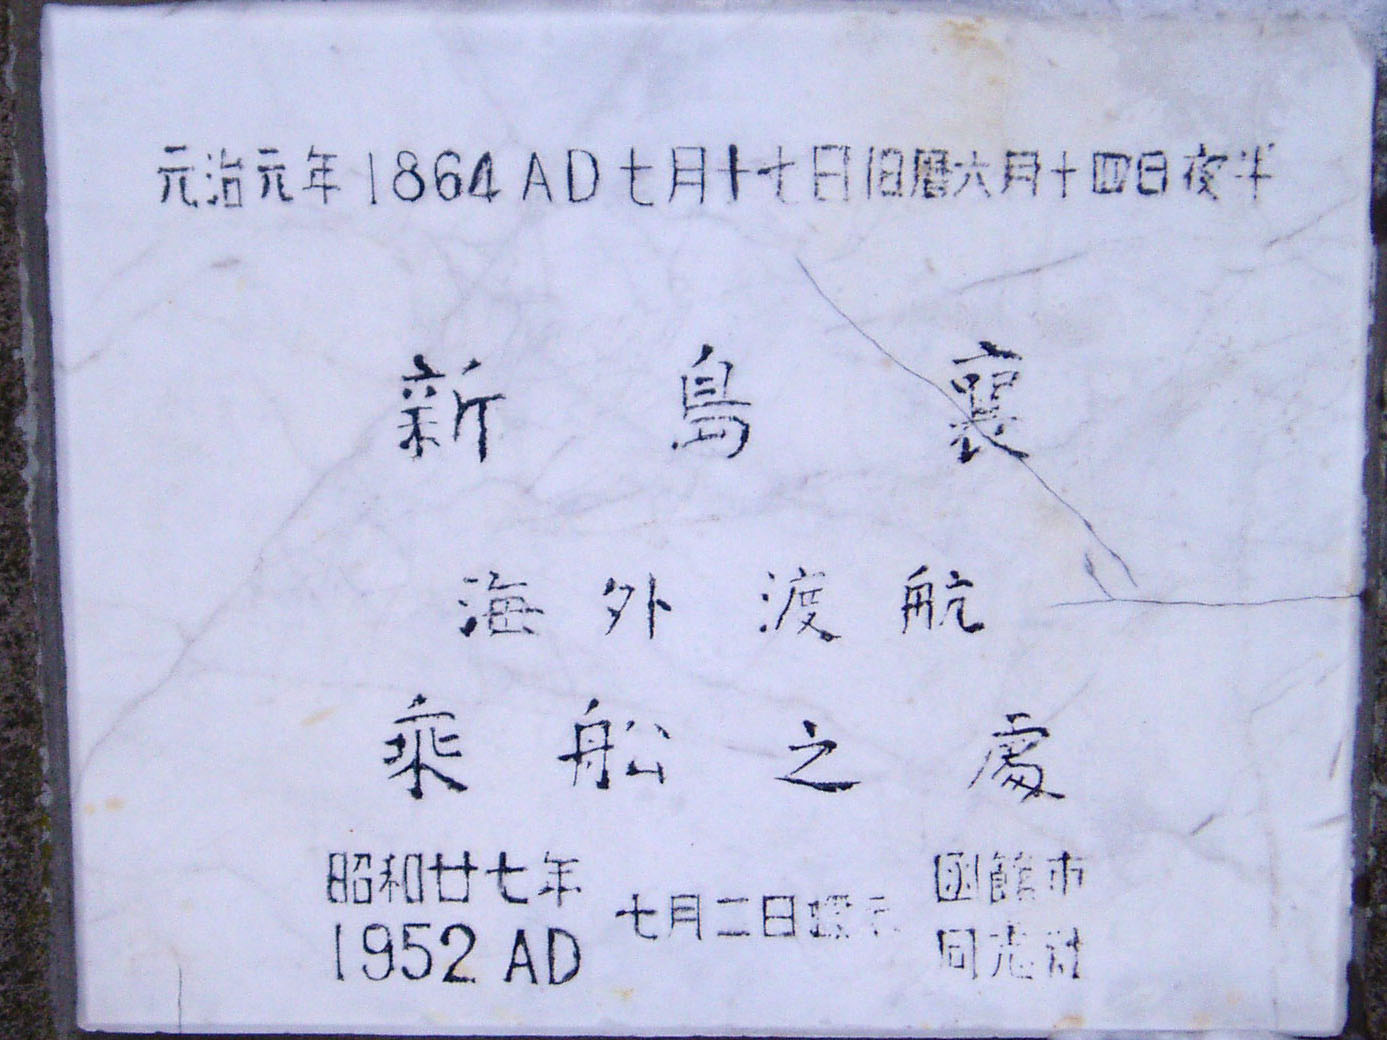 元治元年1864AD七月十七日旧暦六月十四日夜半
新島襄
海外渡航
乗船之處
昭和廿七年
1952AD
七月二日標示
函館市
同志社